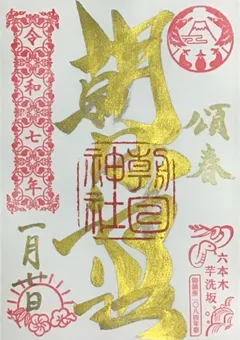 頌春
六本木
芋洗坂
朝日神社
朝日
神社
令和七年
一月